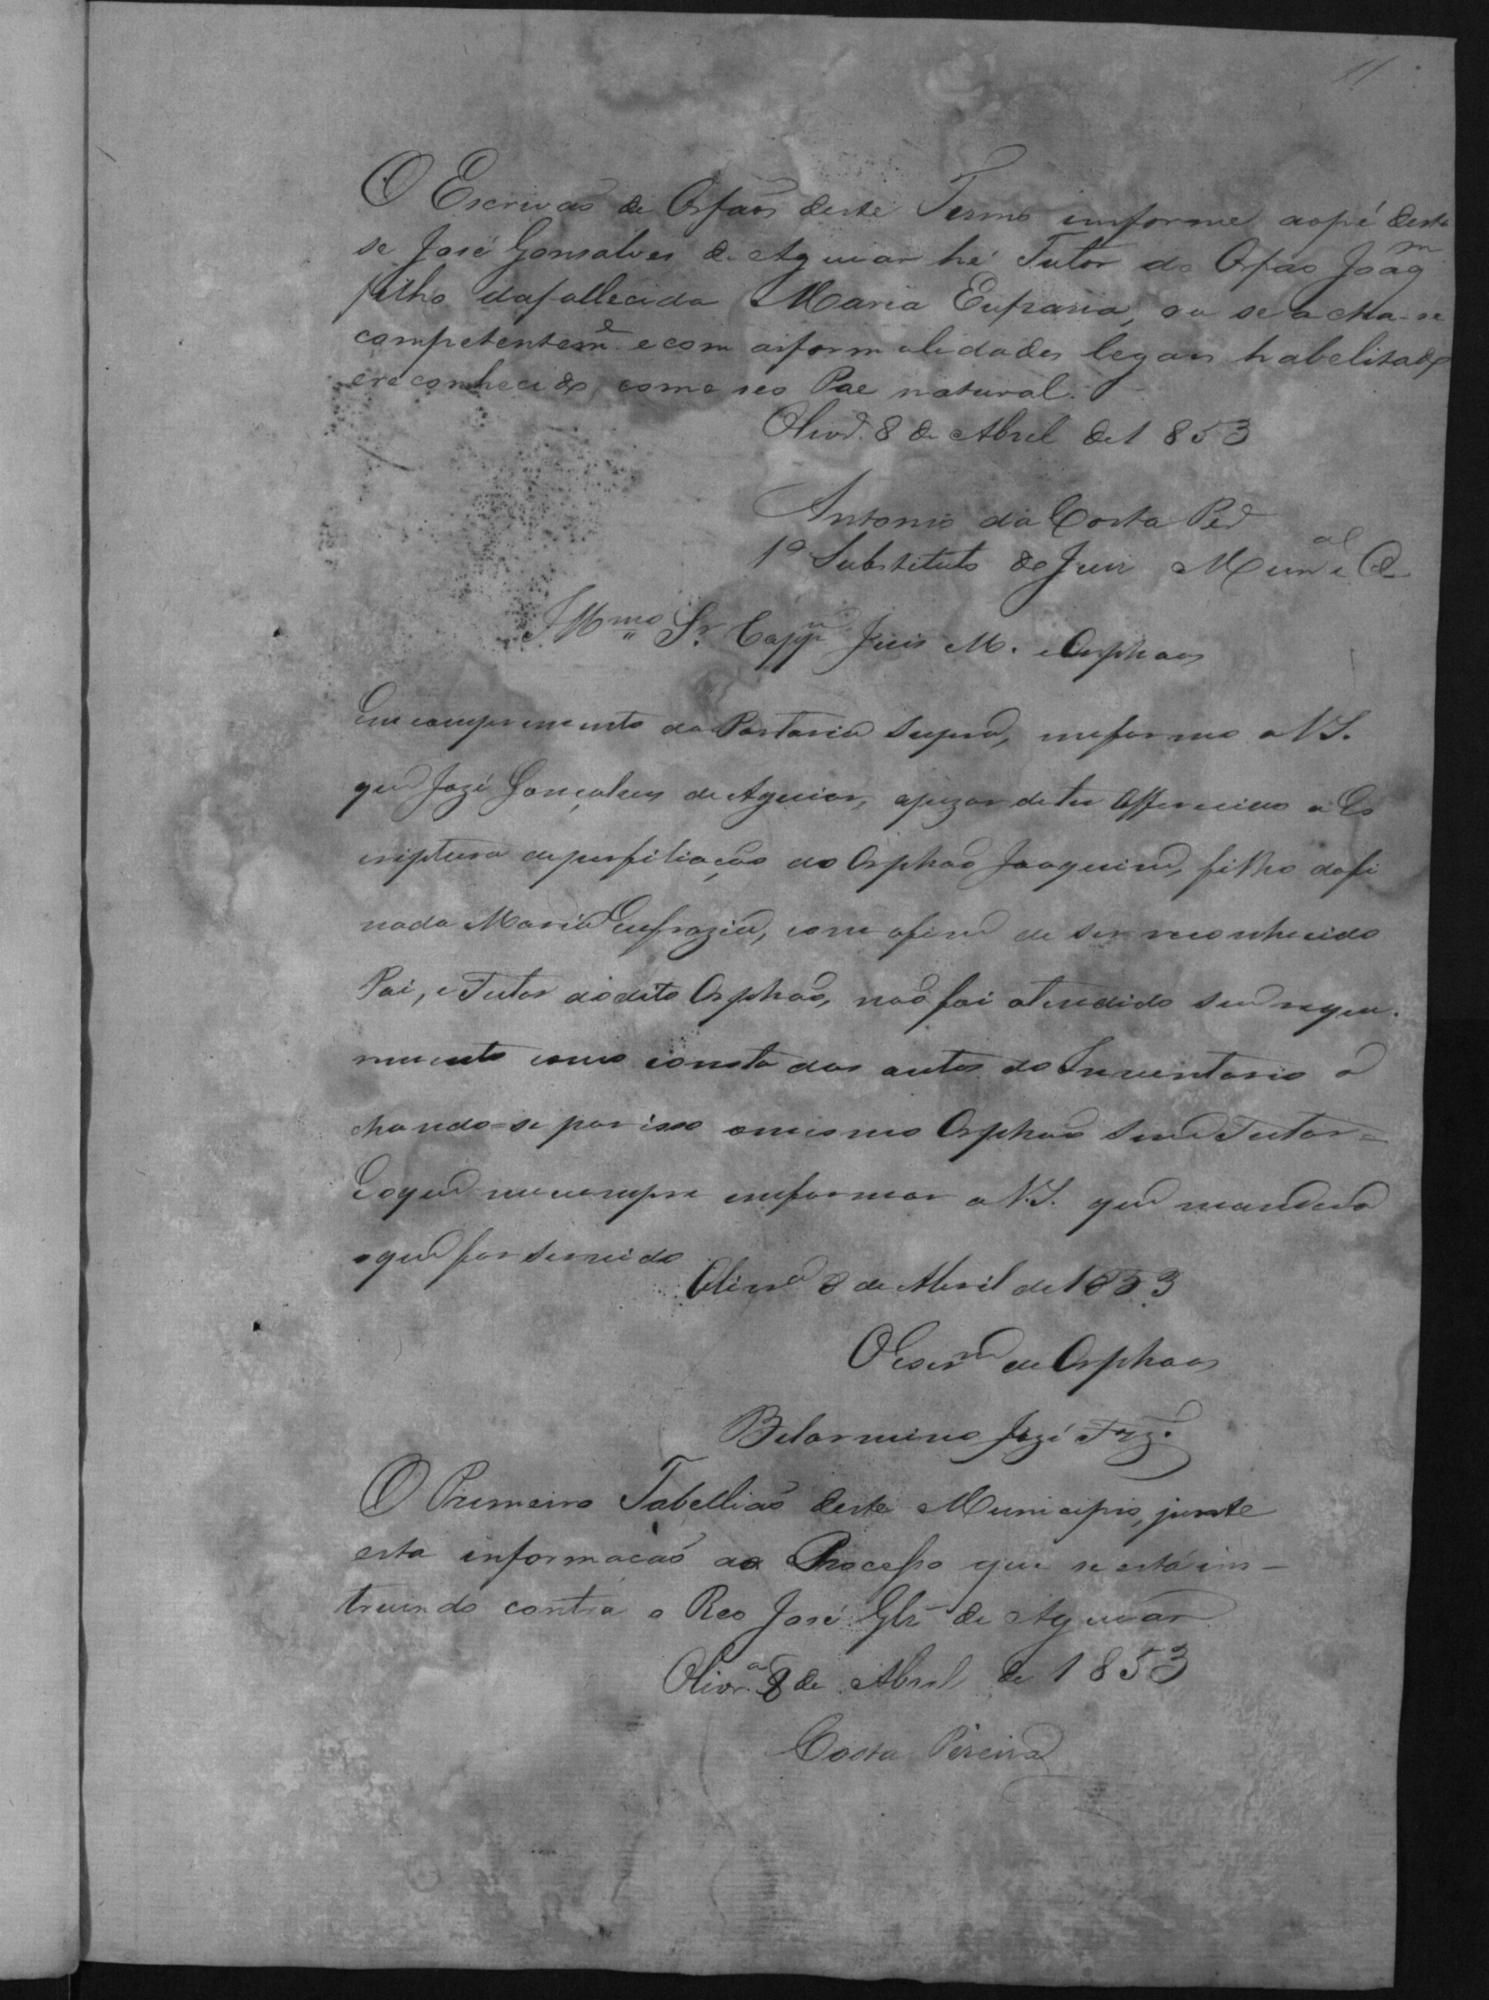 11
O Escrivaõ de Orfaõs deste Termo imforme aopé deste
se José Gonsalves de Aguiar hé Tutor do Orfaõ Joaq.m
filho dafallecida Maria Eufrasia, ou se acha-se
competentem.e ecom asformalidades legais habelitado
ereconhecido, como seo Pae natural.
Oliv.ª 8 de Abril de 1853
Antonio da Costa Per.ª
1º Substituto do Juiz Mun.al e Or
Illmo Sr. Capp.m Juis M. e Orphaos
Em comprimento da Portaria Supra, imformo a V.S.
que Jozé Gonçalves de Aguiar, apezar deter Offerecido a Es
criptura deperfiliação do Orphaõ Joaquim, filho dafi
nada Maria Eufrazia, com ofim de ser reconhecido
Pai, e Tutor dodito Orphaõ, naõ foi atendido seu reque-
rimento como consta dos autos do Inventario a
chando-se porisso omesmo Orphaõ sem Tutor=
Eoque mecumpre imformar a V.S. que mandará
oque for servido
Oliv.ª 8 de Abril de 1853
OEscr.m de Orphaos
Belarmino Jozé
O Primeiro Tabelliaõ deste Municipio, junte
esta informacaõ ao Processo que se está ins-
truindo contra o Reo José Glz de Aguiar
Olivr.ª 8 de Abril de 1853
Costa Pereira